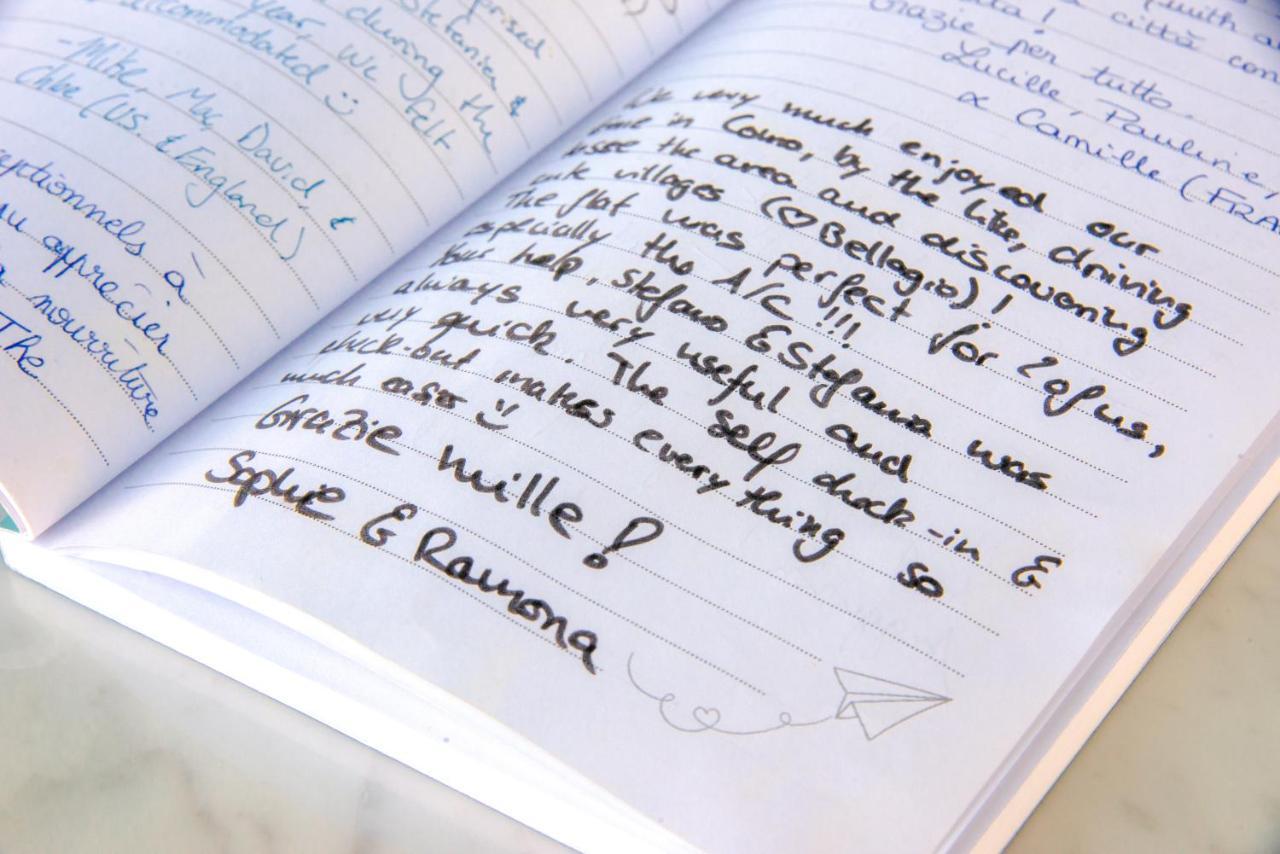 prised
Stefania &
during the
year, we felt
accommodated :)
-Mike, Mac, David, &
Chloe (US. & England)
à
apprécier
nourriture
The
città con
Grazie per tutto.
Lucille, Pauline,
& Camille (FRA
We very much enjoyed our
time in Como, by the like, driving
the area and discovering
villages (♡Bellagio)!
The flat was perfect for 2 of us,
especially the A/C !!!
Your help, Stefano & Stefania was
always very useful and
very quick. The self check-in &
check-out makes everything so
much easier :)
Grazie mille!
Sophie & Ramona